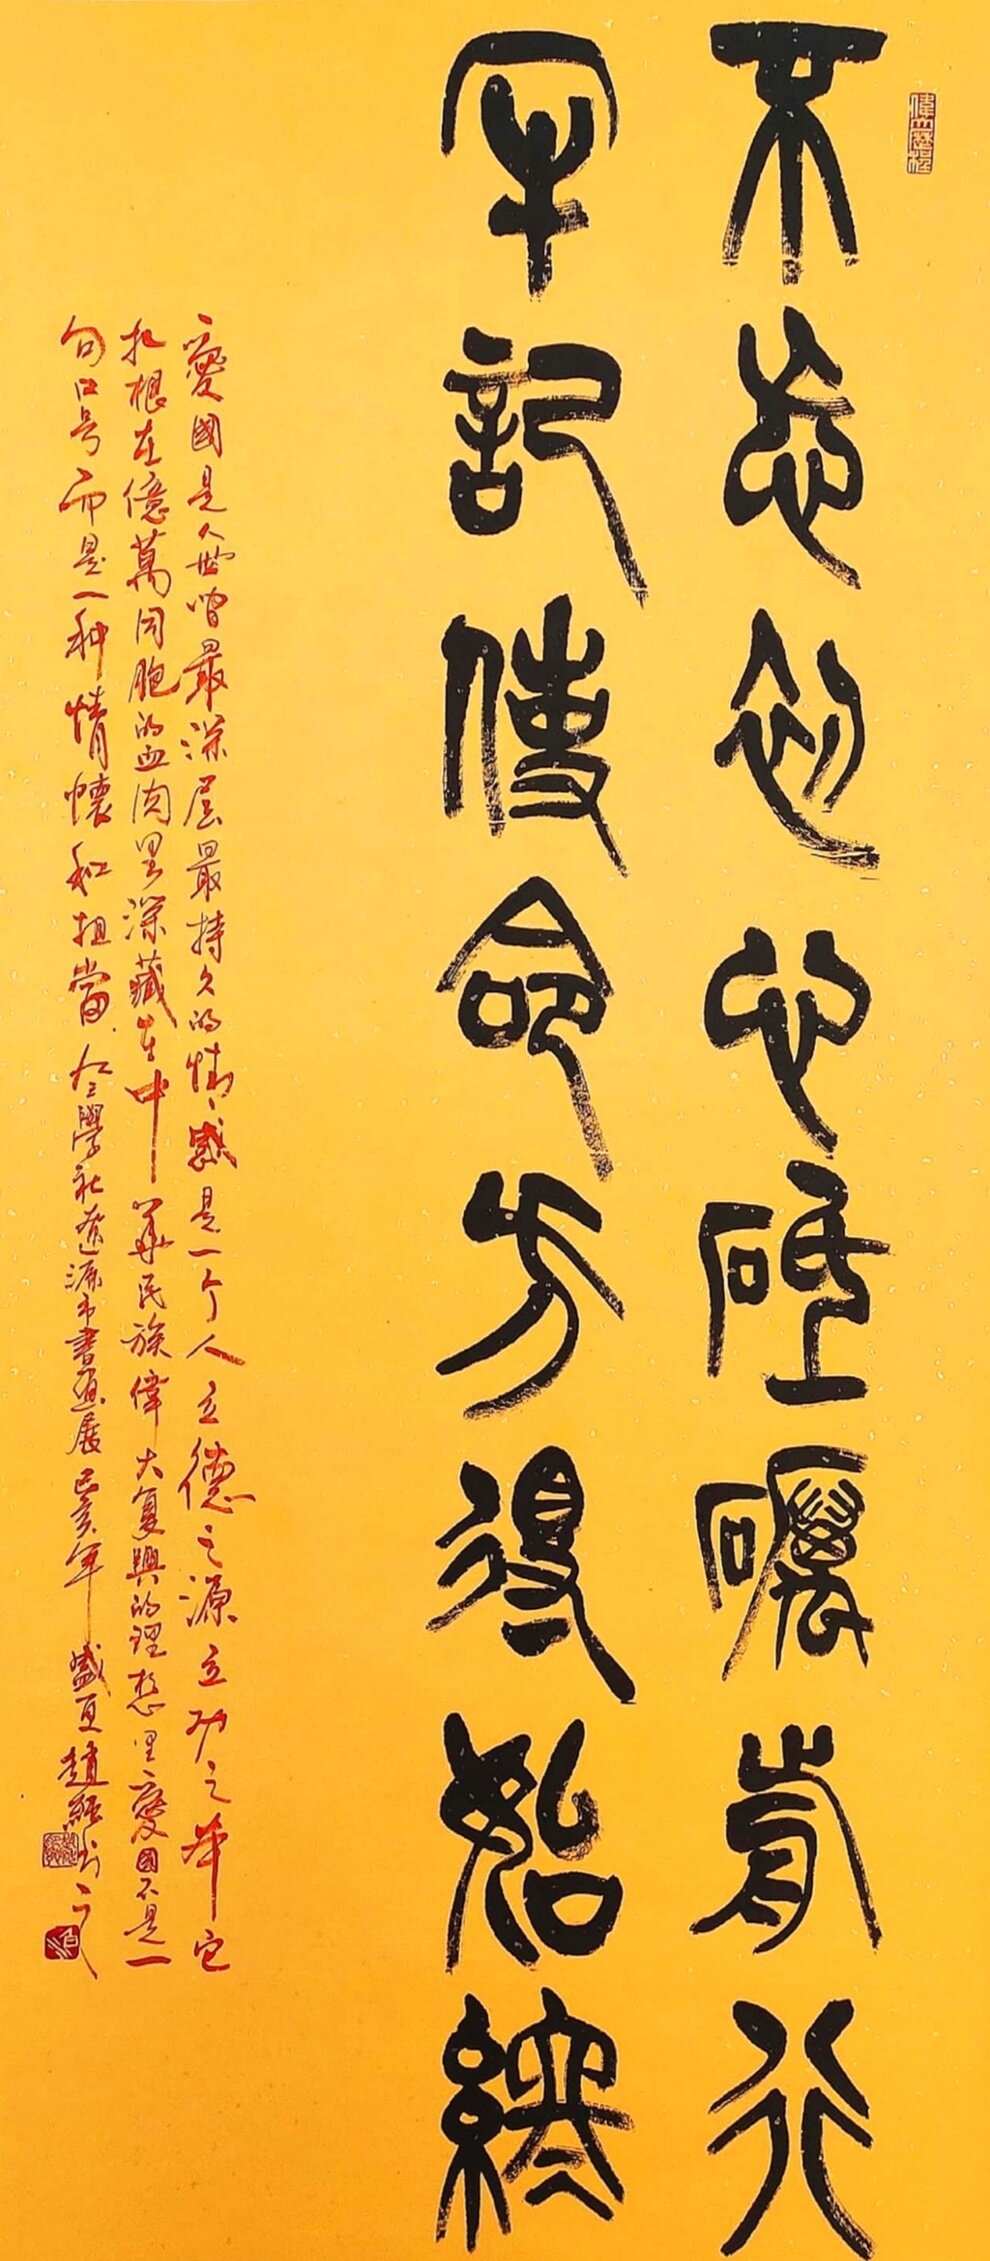 偉大歷程
不忘初心砥礪前行
牢記使命方得始終
愛國是人世間最深層最持久的情感是一个人立德之源立功之本它
扎根在億萬同胞的血肉里深藏在中華民族偉大复興的理想里愛國不是一
句口号而是一种情懷和担當九三學社遼源市書画展己亥年盛夏趙